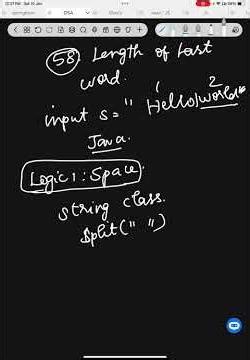 58. Length of Last
word.
1 2
input s = " Hello world"
Java.
Logic 1 : Space.
string class.
split(" ")